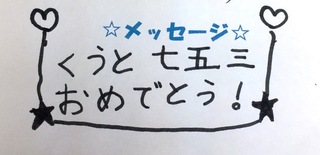 ☆メッセージ☆
くうと 七五三
おめでとう!